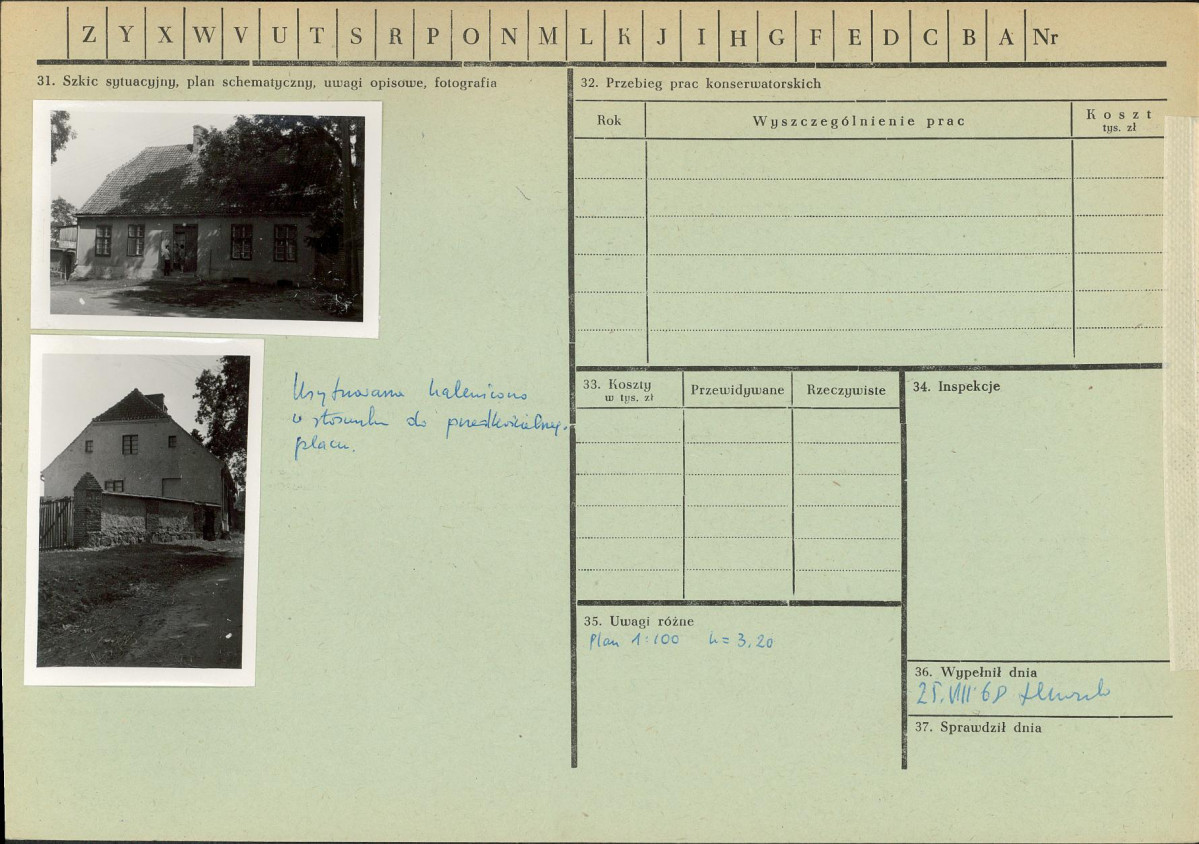 Z Y X W V U T S R P O N M L K J I H G F E D C B A Nr
31. Szkic sytuacyjny, plan schematyczny, uwagi opisowe, fotografia
Usytuowana kalenicowo
w stosunku do przedkościelnego
placu.
32. Przebieg prac konserwatorskich
Rok Wyszczególnienie prac Koszt
tys. zł
33. Koszty
w tys. zł
Przewidywane Rzeczywiste
34. Inspekcje
35. Uwagi różne
Plan 1:100 h = 3,20
36. Wypełnił dnia
25.VIII 68
37. Sprawdził dnia